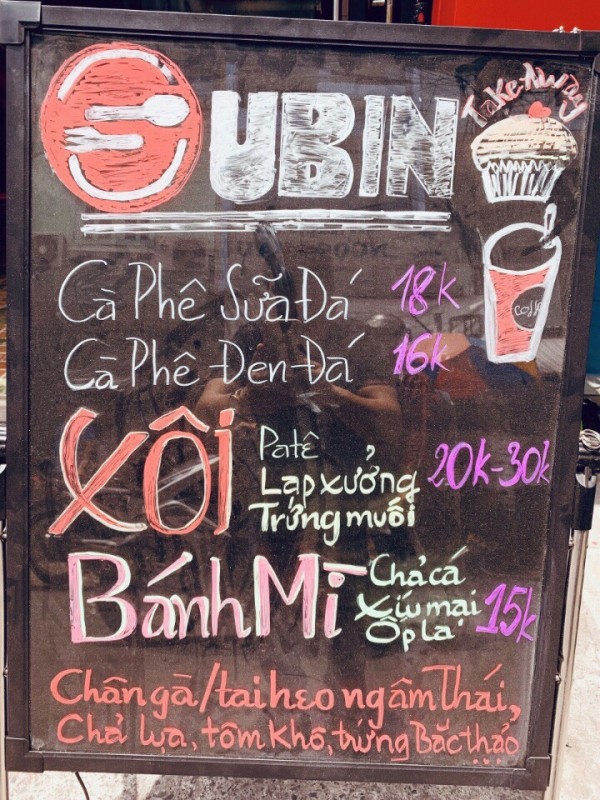 SUBIN
Take-Away
Coffee
Cà Phê Sữa Đá 18k
Cà Phê Đen Đá 16k
XÔI Patê
Lạp xưởng 20k-30k
Trứng muối
Bánh Mì Chả cá
Xíu mại 15k
Ốp la
Chân gà/tai heo ngâm Thái,
Chả lụa, tôm khô, trứng Bắc thảo